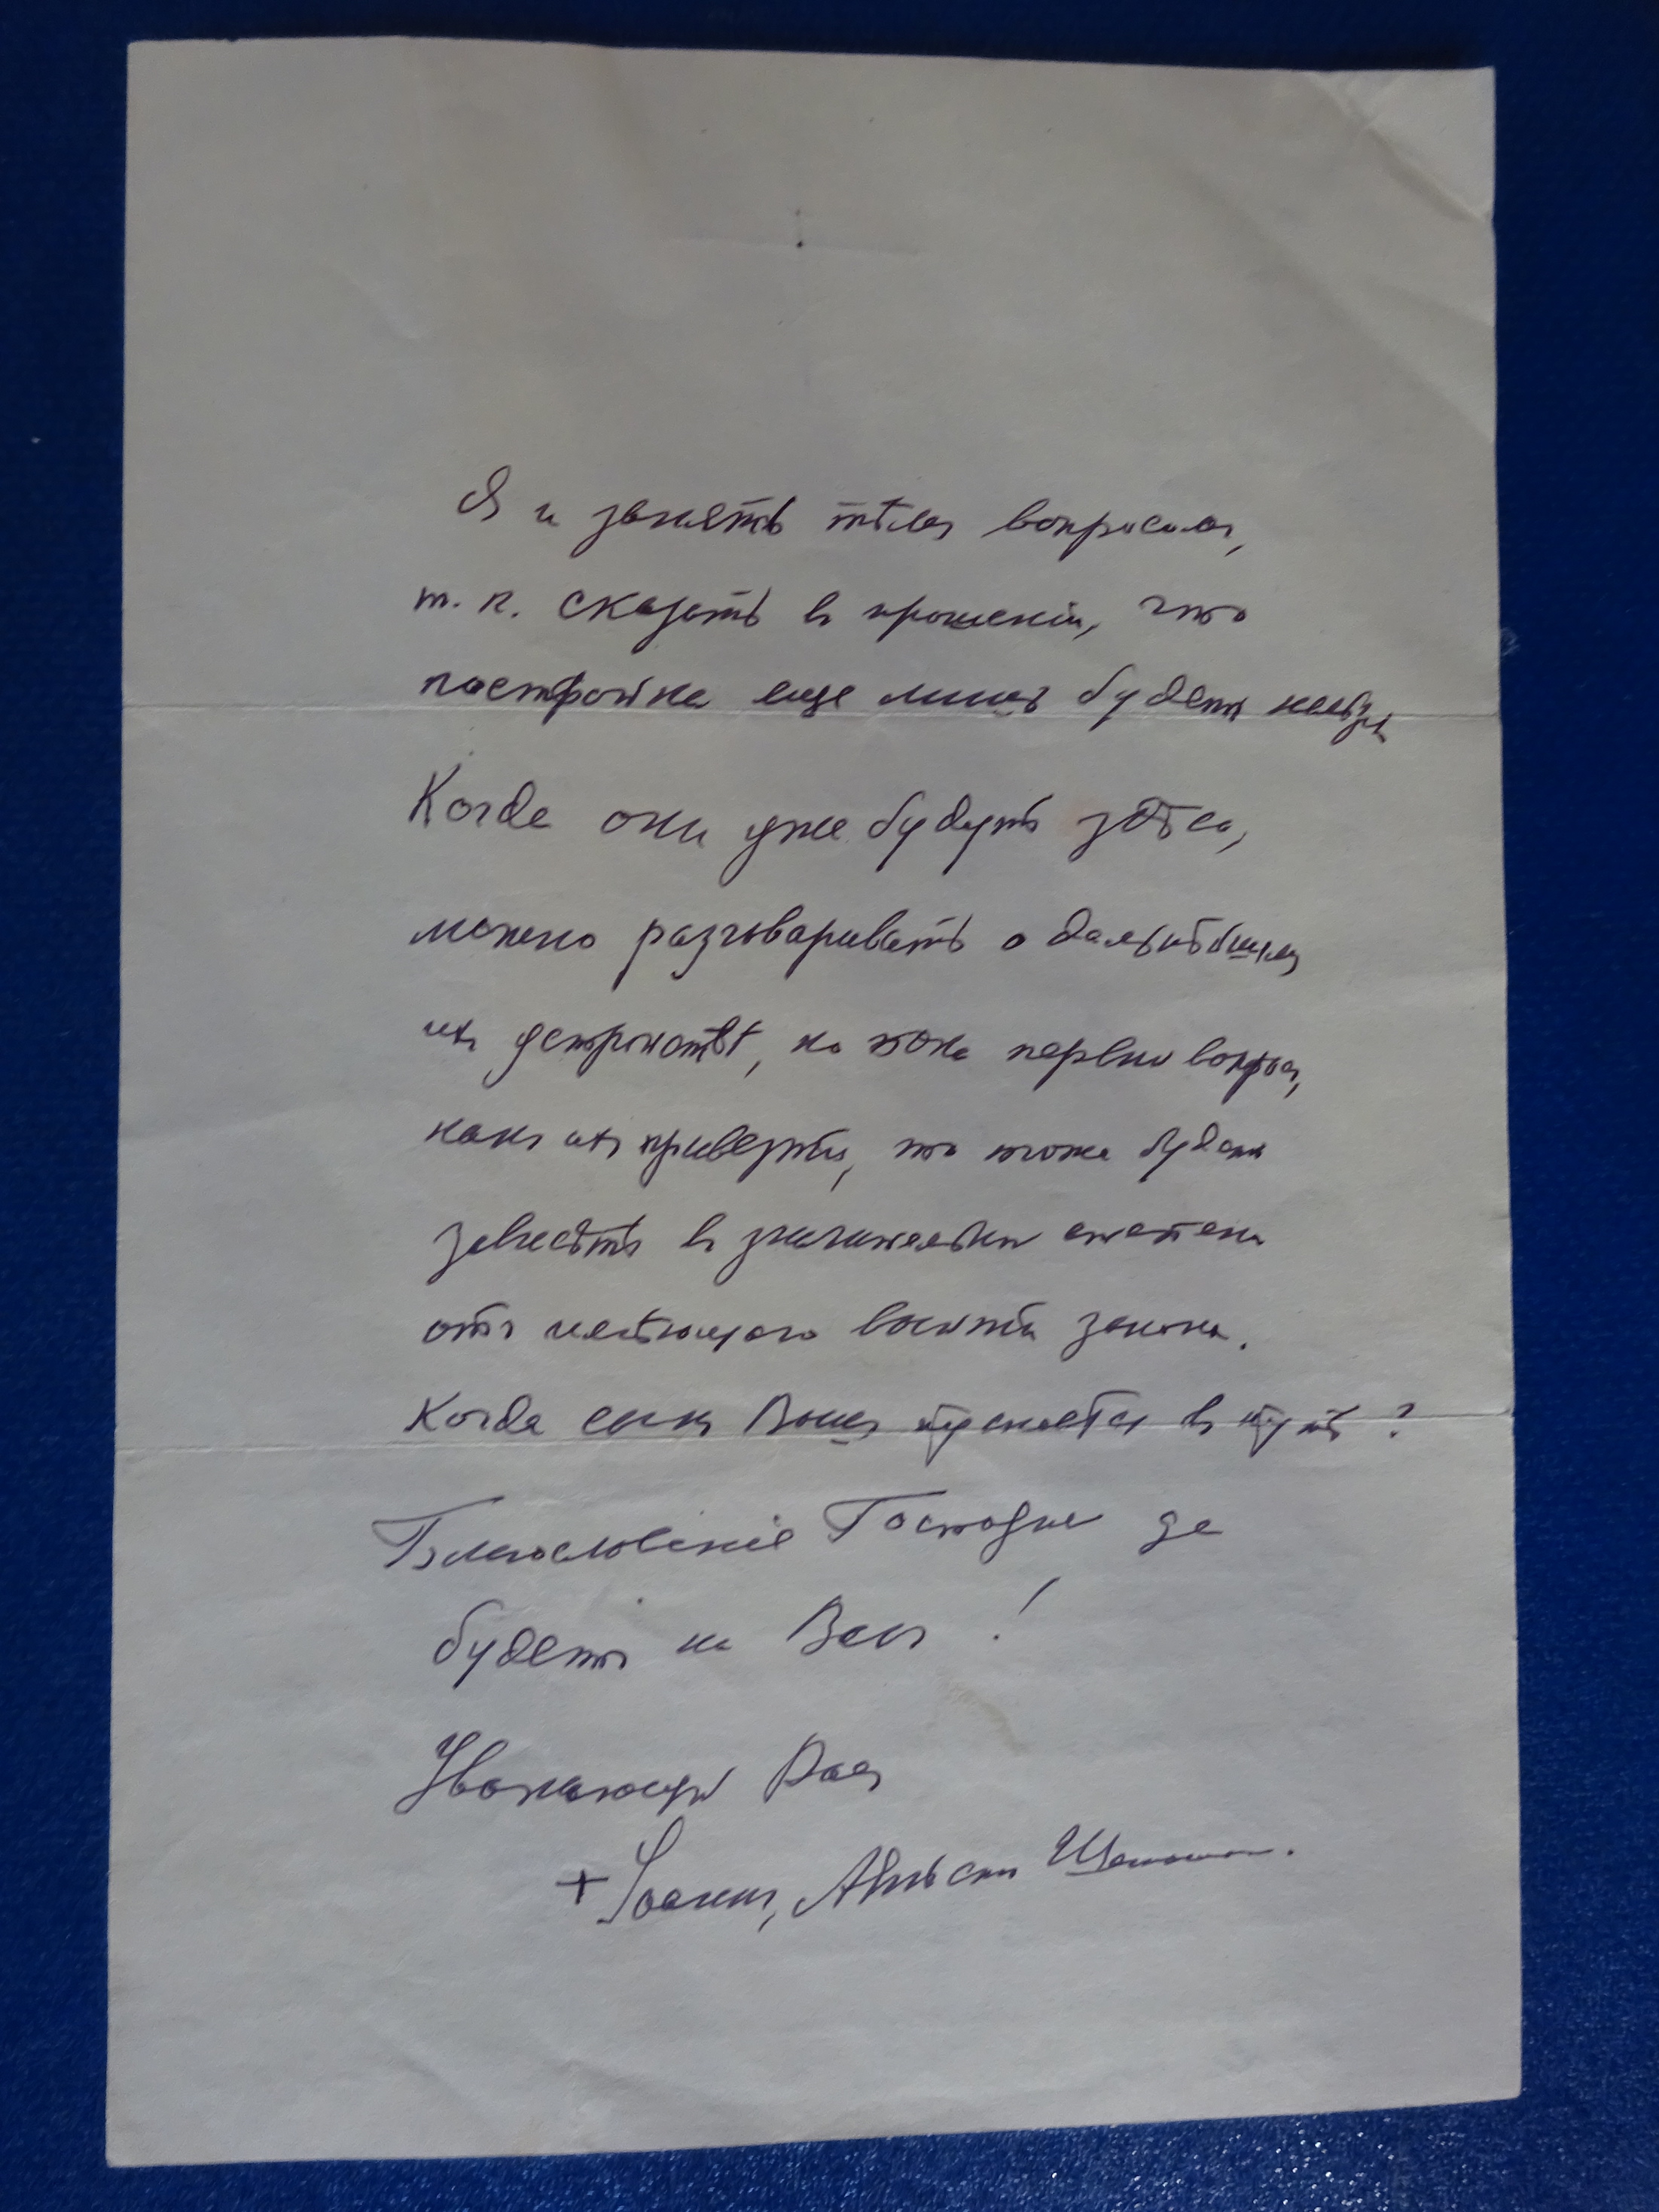 Я и занять тѣмъ вопросомъ,
т. к. сказать въ прошенiи, что
постройка еще лишь будетъ нельзя.
Когда они уже будутъ здѣсь,
можно разговаривать о дальнѣйшемъ
ихъ устройствѣ, но пока первый вопросъ,
какъ ихъ привезти, то тоже будетъ
зависѣть въ значительной степени
отъ имѣющаго выйти закона.
Когда сынъ Вашъ пускается въ путь?
Благословенiе Господне да
будетъ на Васъ!
Уважающiй Васъ
+ Iоаннъ,